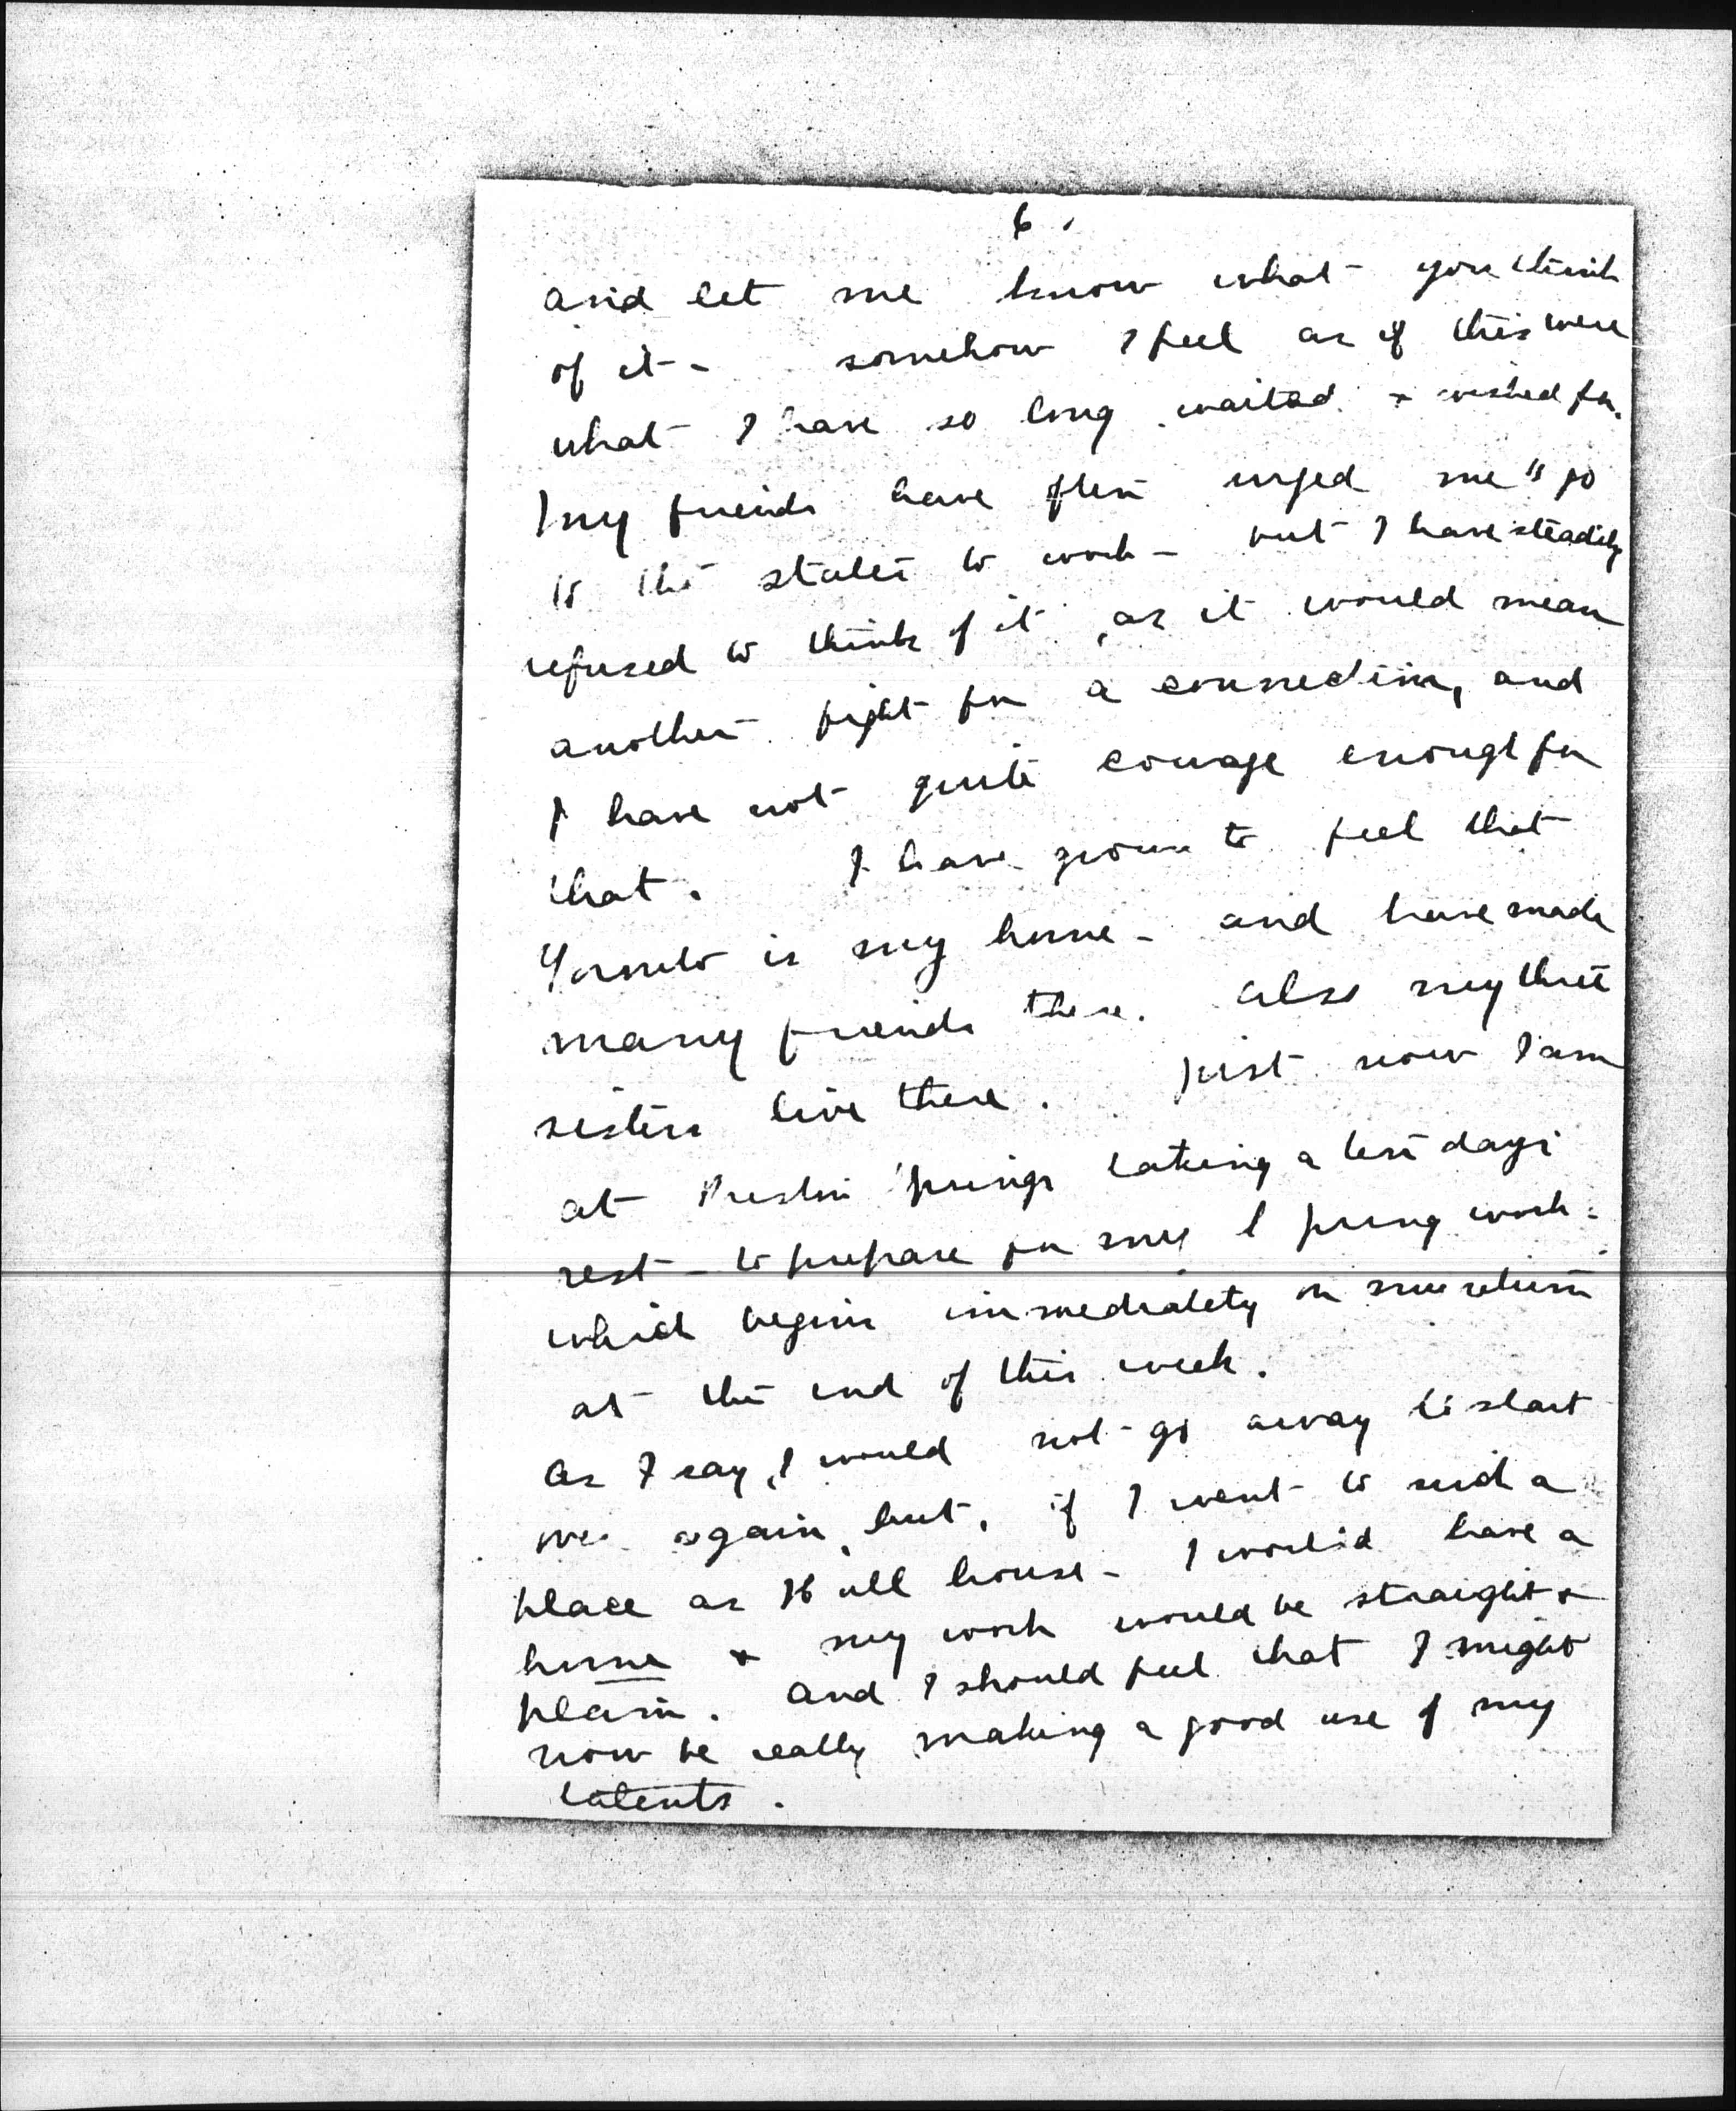 6.
and let me know what you think
of it - somehow I feel as if this were
what I have so long waited & wished for.
My friends have often urged me to go
to the states to work - but I have steadily
refused to think of it, as it would mean
another fight for a connection, and
I have not quite courage enough for
that. I have grown to feel that
Toronto is my home - and have made
many friends there. Also my three
sisters live there. Just now I am
at Preston Springs taking a few days
rest - to prepare for my Spring work -
which begins immediately on my return
at the end of this week.
As I say, I would not go away to start
over again, but, if I went to such a
place as Hull house - I would have a
home & my work would be straight &
plain. And I should feel that I might
now be really making a good use of my
talents.